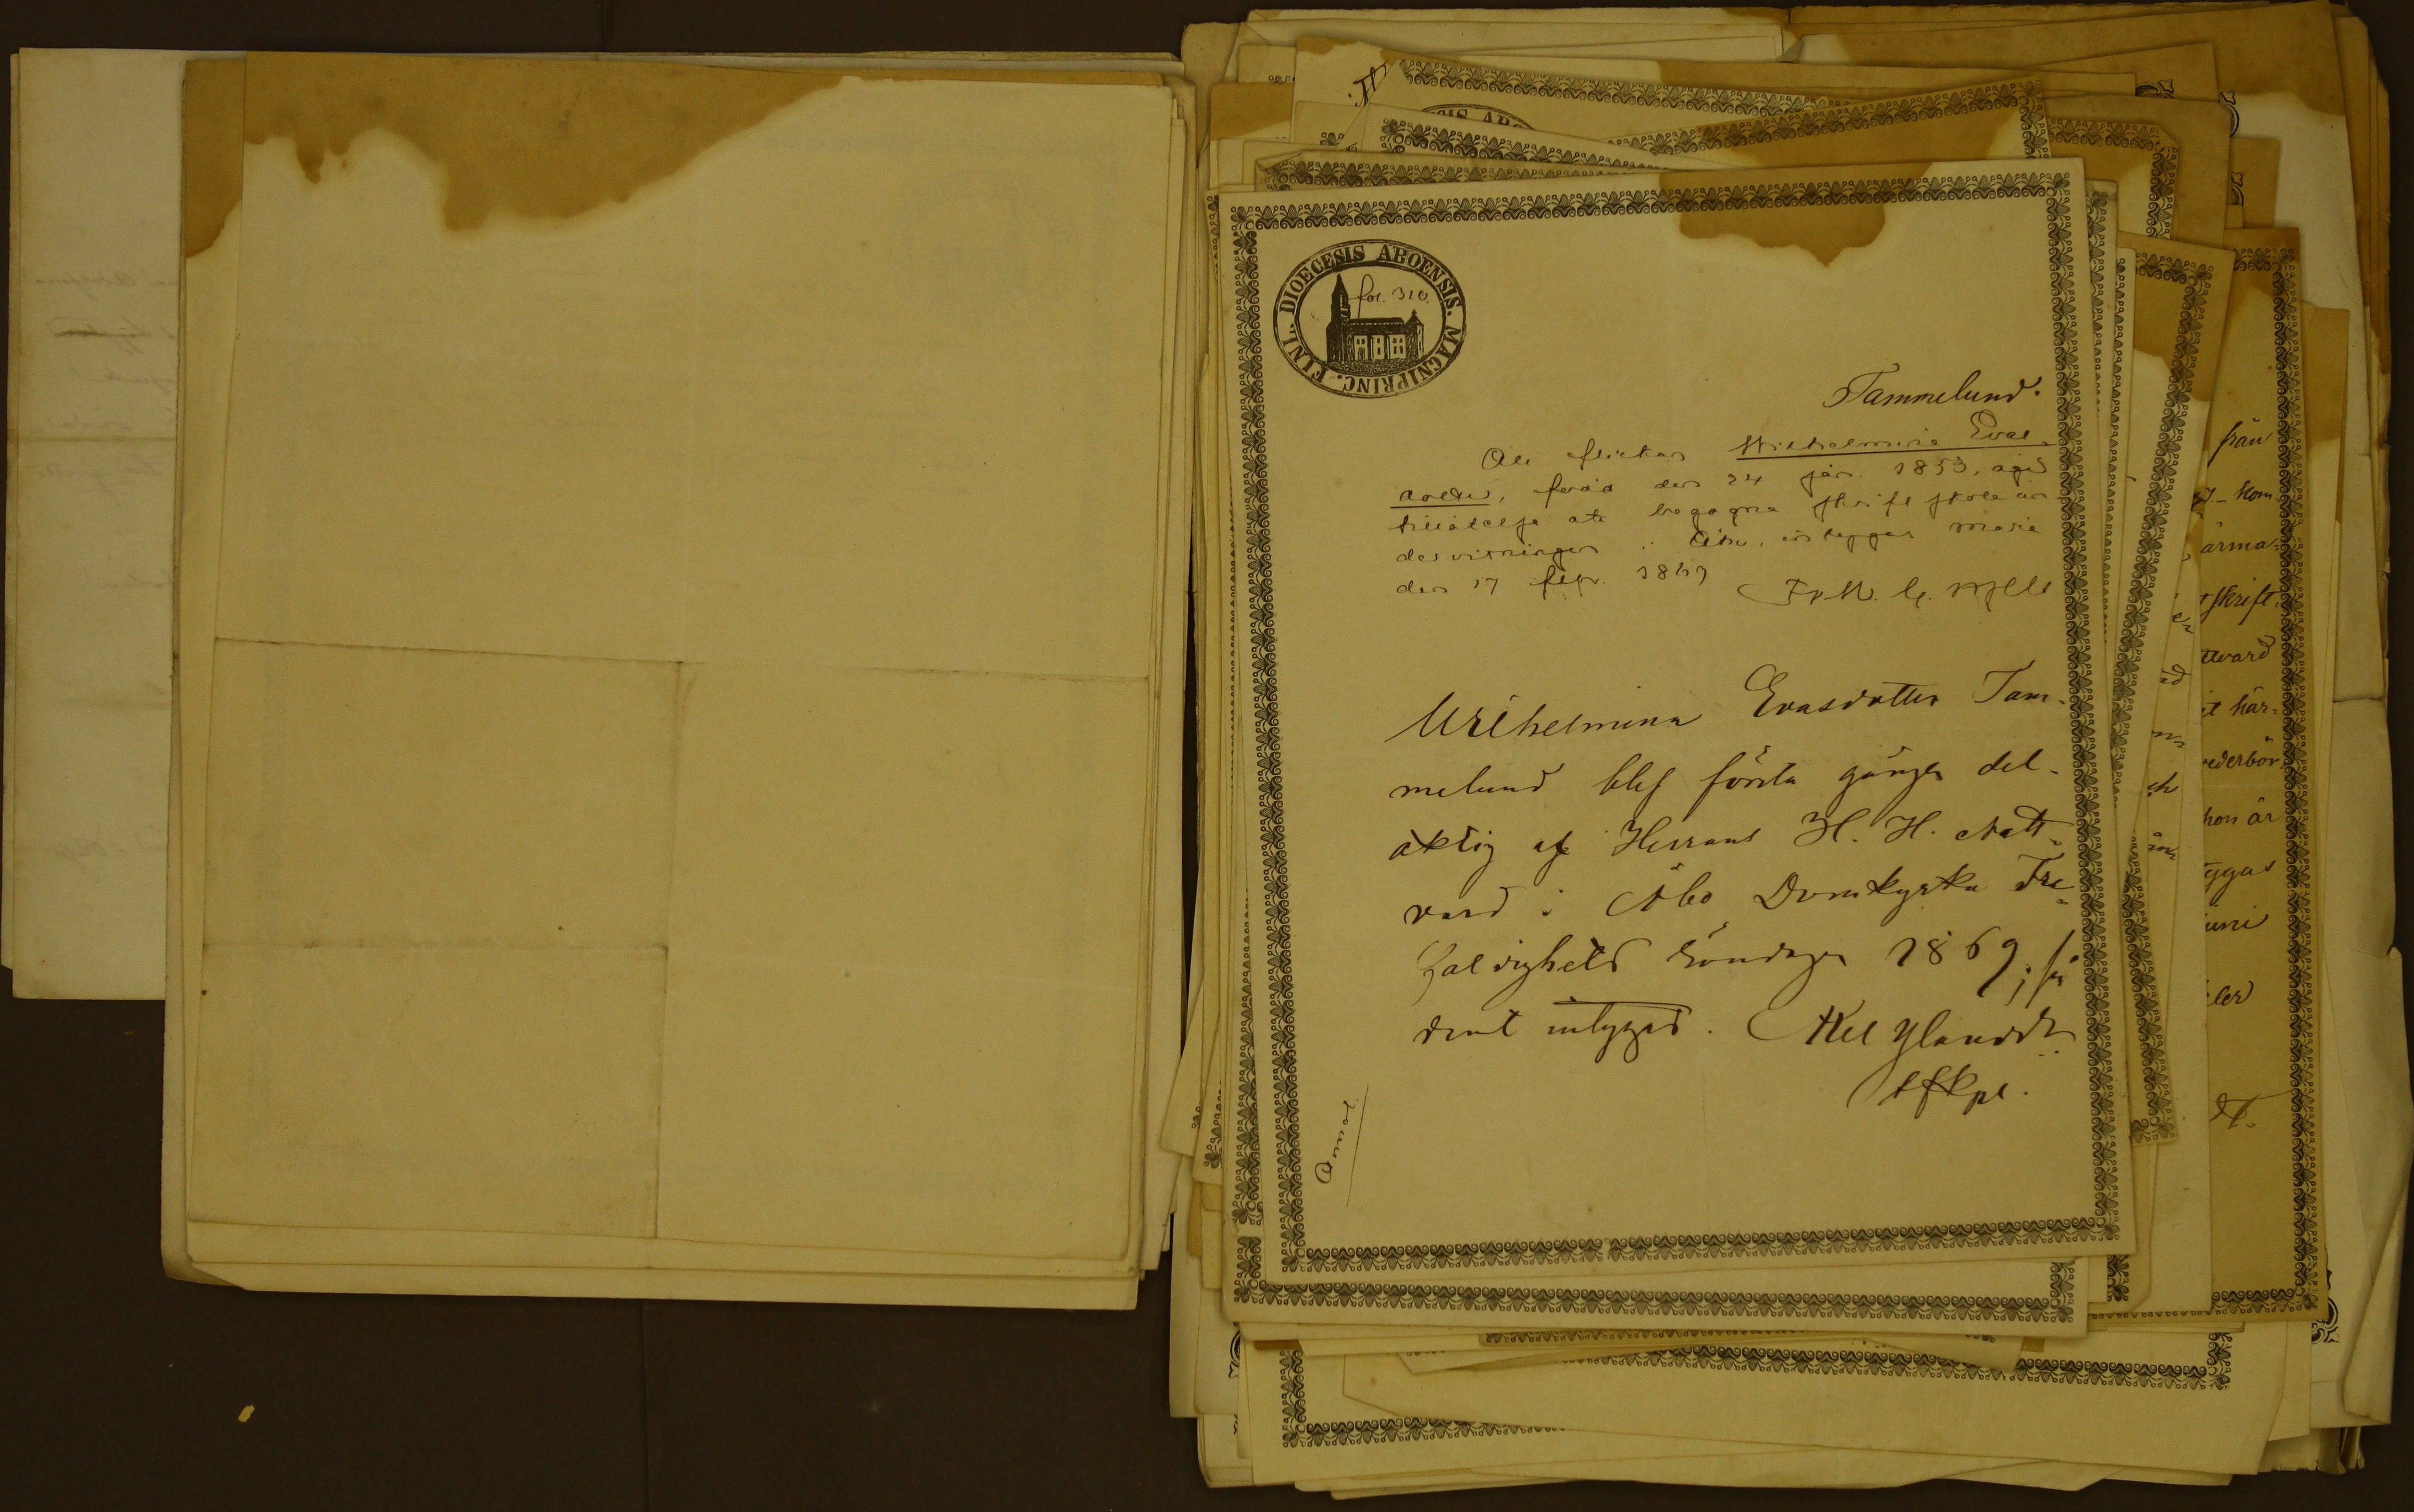 FINL. DIOECESIS ABOENSIS. MAGNIPRINC.
fol. 320.
Tammelund.
Att flickan Wilhelmina Evas
dotter, född den 24 jan. 1853, äger
tillåtelse att begagna skriftskoleun
dervisningen i Åbo, intygar Maria
den 17 febr. 1869
Wilhelmina Evasdotter Tam-
melund blef första gången del-
aktig af Herrans H. H. Natt-
vard i Åbo Domkyrka Tre-
faldighets Söndagen 1869;
intygas. Axel
Annot.
från
kom-
ärma-
skrift
ttvard
här-
vederbör
hon är
tygas
juni